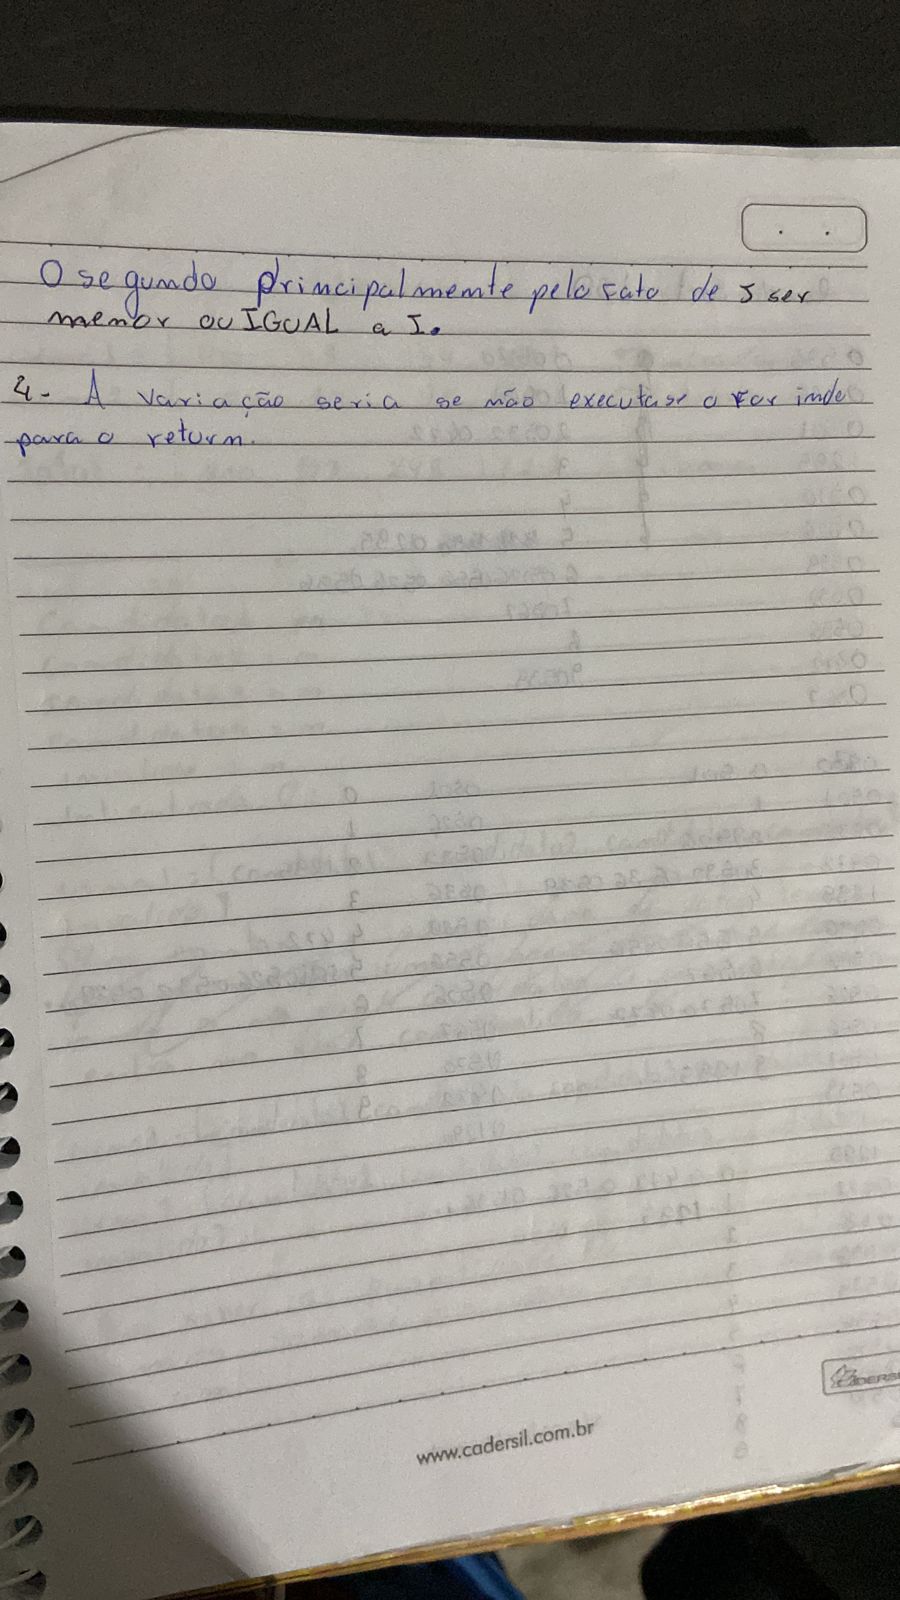 O segundo principalmente pelo fato de J ser
menor ou IGUAL a I.
4- A variação seria se não executase o For indo
para o return.
www.cadersil.com.br